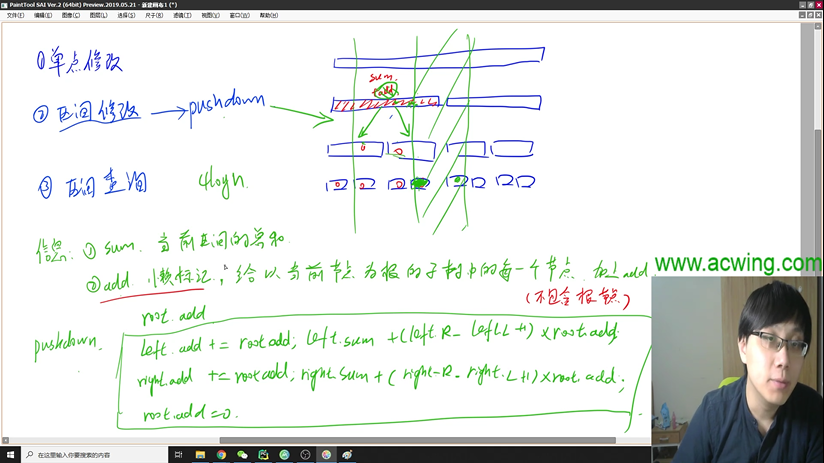 PaintTool SAI Ver.2 (64bit) Preview.2019.05.21 - 新建画布1 (*)
文件(F) 编辑(E) 图像(C) 图层(L) 选择(S) 尺子(R) 滤镜(T) 视图(V) 窗口(W) 帮助(H)
① 单点修改
sum.
add
② 区间修改 → pushdown
③ 区间查询 4logn.
信息: ① sum. 当前区间的总和.
② add 懒标记, 给以当前节点为根的子树中的每一个节点 加上 add
(不包含根节点)
www.acwing.com
root.add
pushdown.
left.add += root.add; left.sum += (left.R - left.L+1) × root.add.
right.add += root.add; right.sum += (right.R - right.L+1) × root.add;
root.add=0.
在这里输入你要搜索的内容